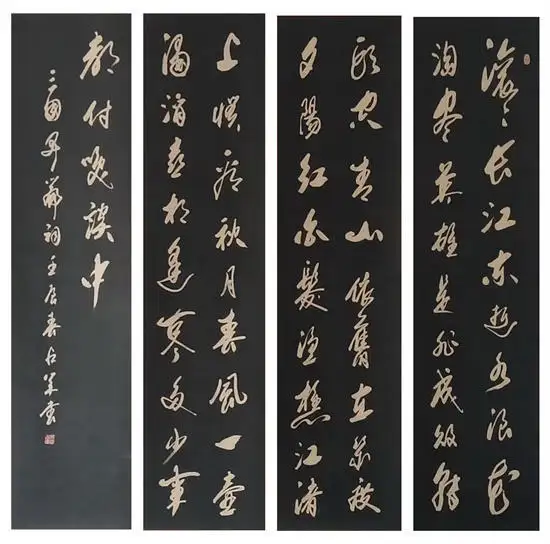 滚々长江东逝水浪花
淘尽英雄是非成败转
头空青山依舊在几度
夕陽红白髮渔樵江渚
上惯看秋月春風一壶
濁酒喜相逢古今多少事
都付笑谈中
三国开篇词 春 书